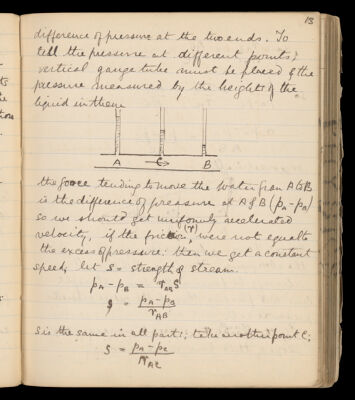 13
difference of pressure at the two ends. To
tell the pressure at different points,
vertical gauge tubes must be placed & the
pressure measured by the heights of the
liquid in them
A C B
the force tending to move the water from A to B
is the difference of pressure at A & B (pA - pB)
so we should get uniformly accelerated
velocity, if the friction (r) were not equal to
the excess of pressure: then we get a constant
speed. let S = strength of stream.
pA - pB = rAB S
S = pA - pB / rAB
S is the same in all parts: take another point C;
S = pA - pC / rAC